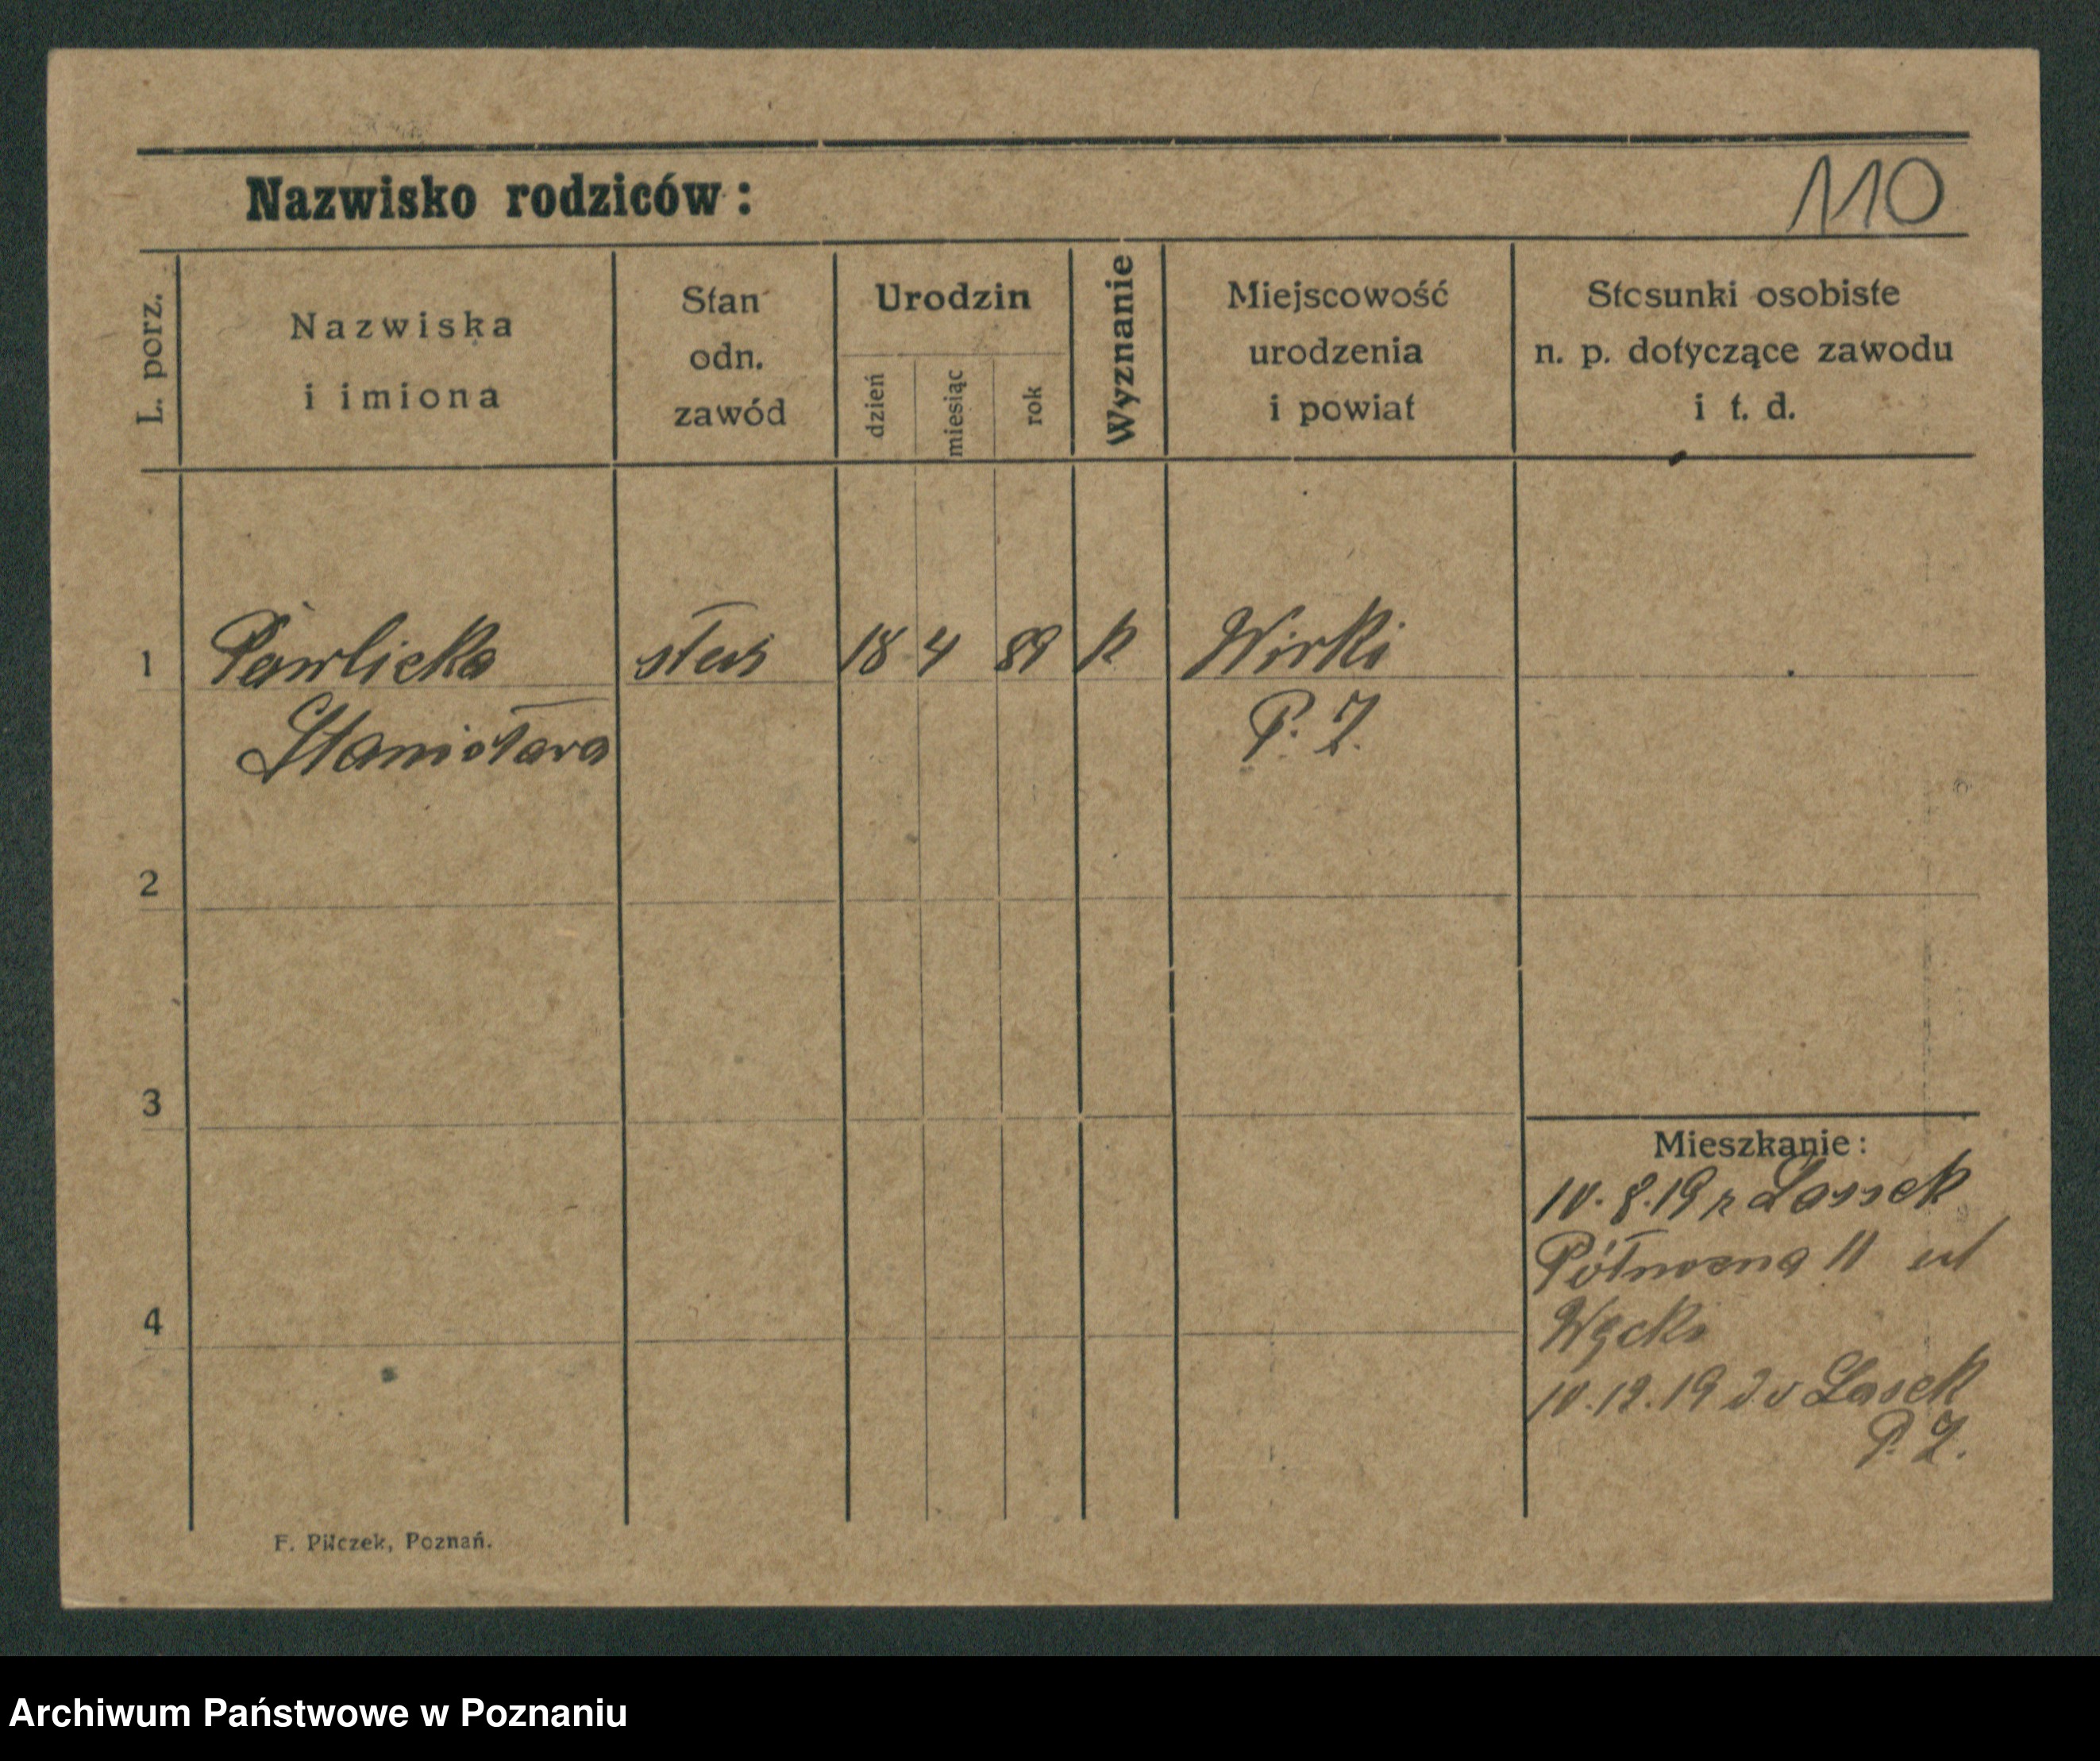 110
Nazwisko rodziców:
L. porz.
Nazwiska
i imiona
Stan
odn.
zawód
Urodzin
dzień
miesiąc
rok
Wyznanie
Miejscowość
urodzenia
i powiat
Stosunki osobiste
n. p. dotyczące zawodu
i t. d.
1 Pawlicka 18 4 89 k Wirki
Stanisława P. Z.
2
3
4
Mieszkanie:
10.8.19 z Lassek
Północna 11
10.12.19 do Lasek
P. Z.
F. Pilczek, Poznań.
Archiwum Państwowe w Poznaniu